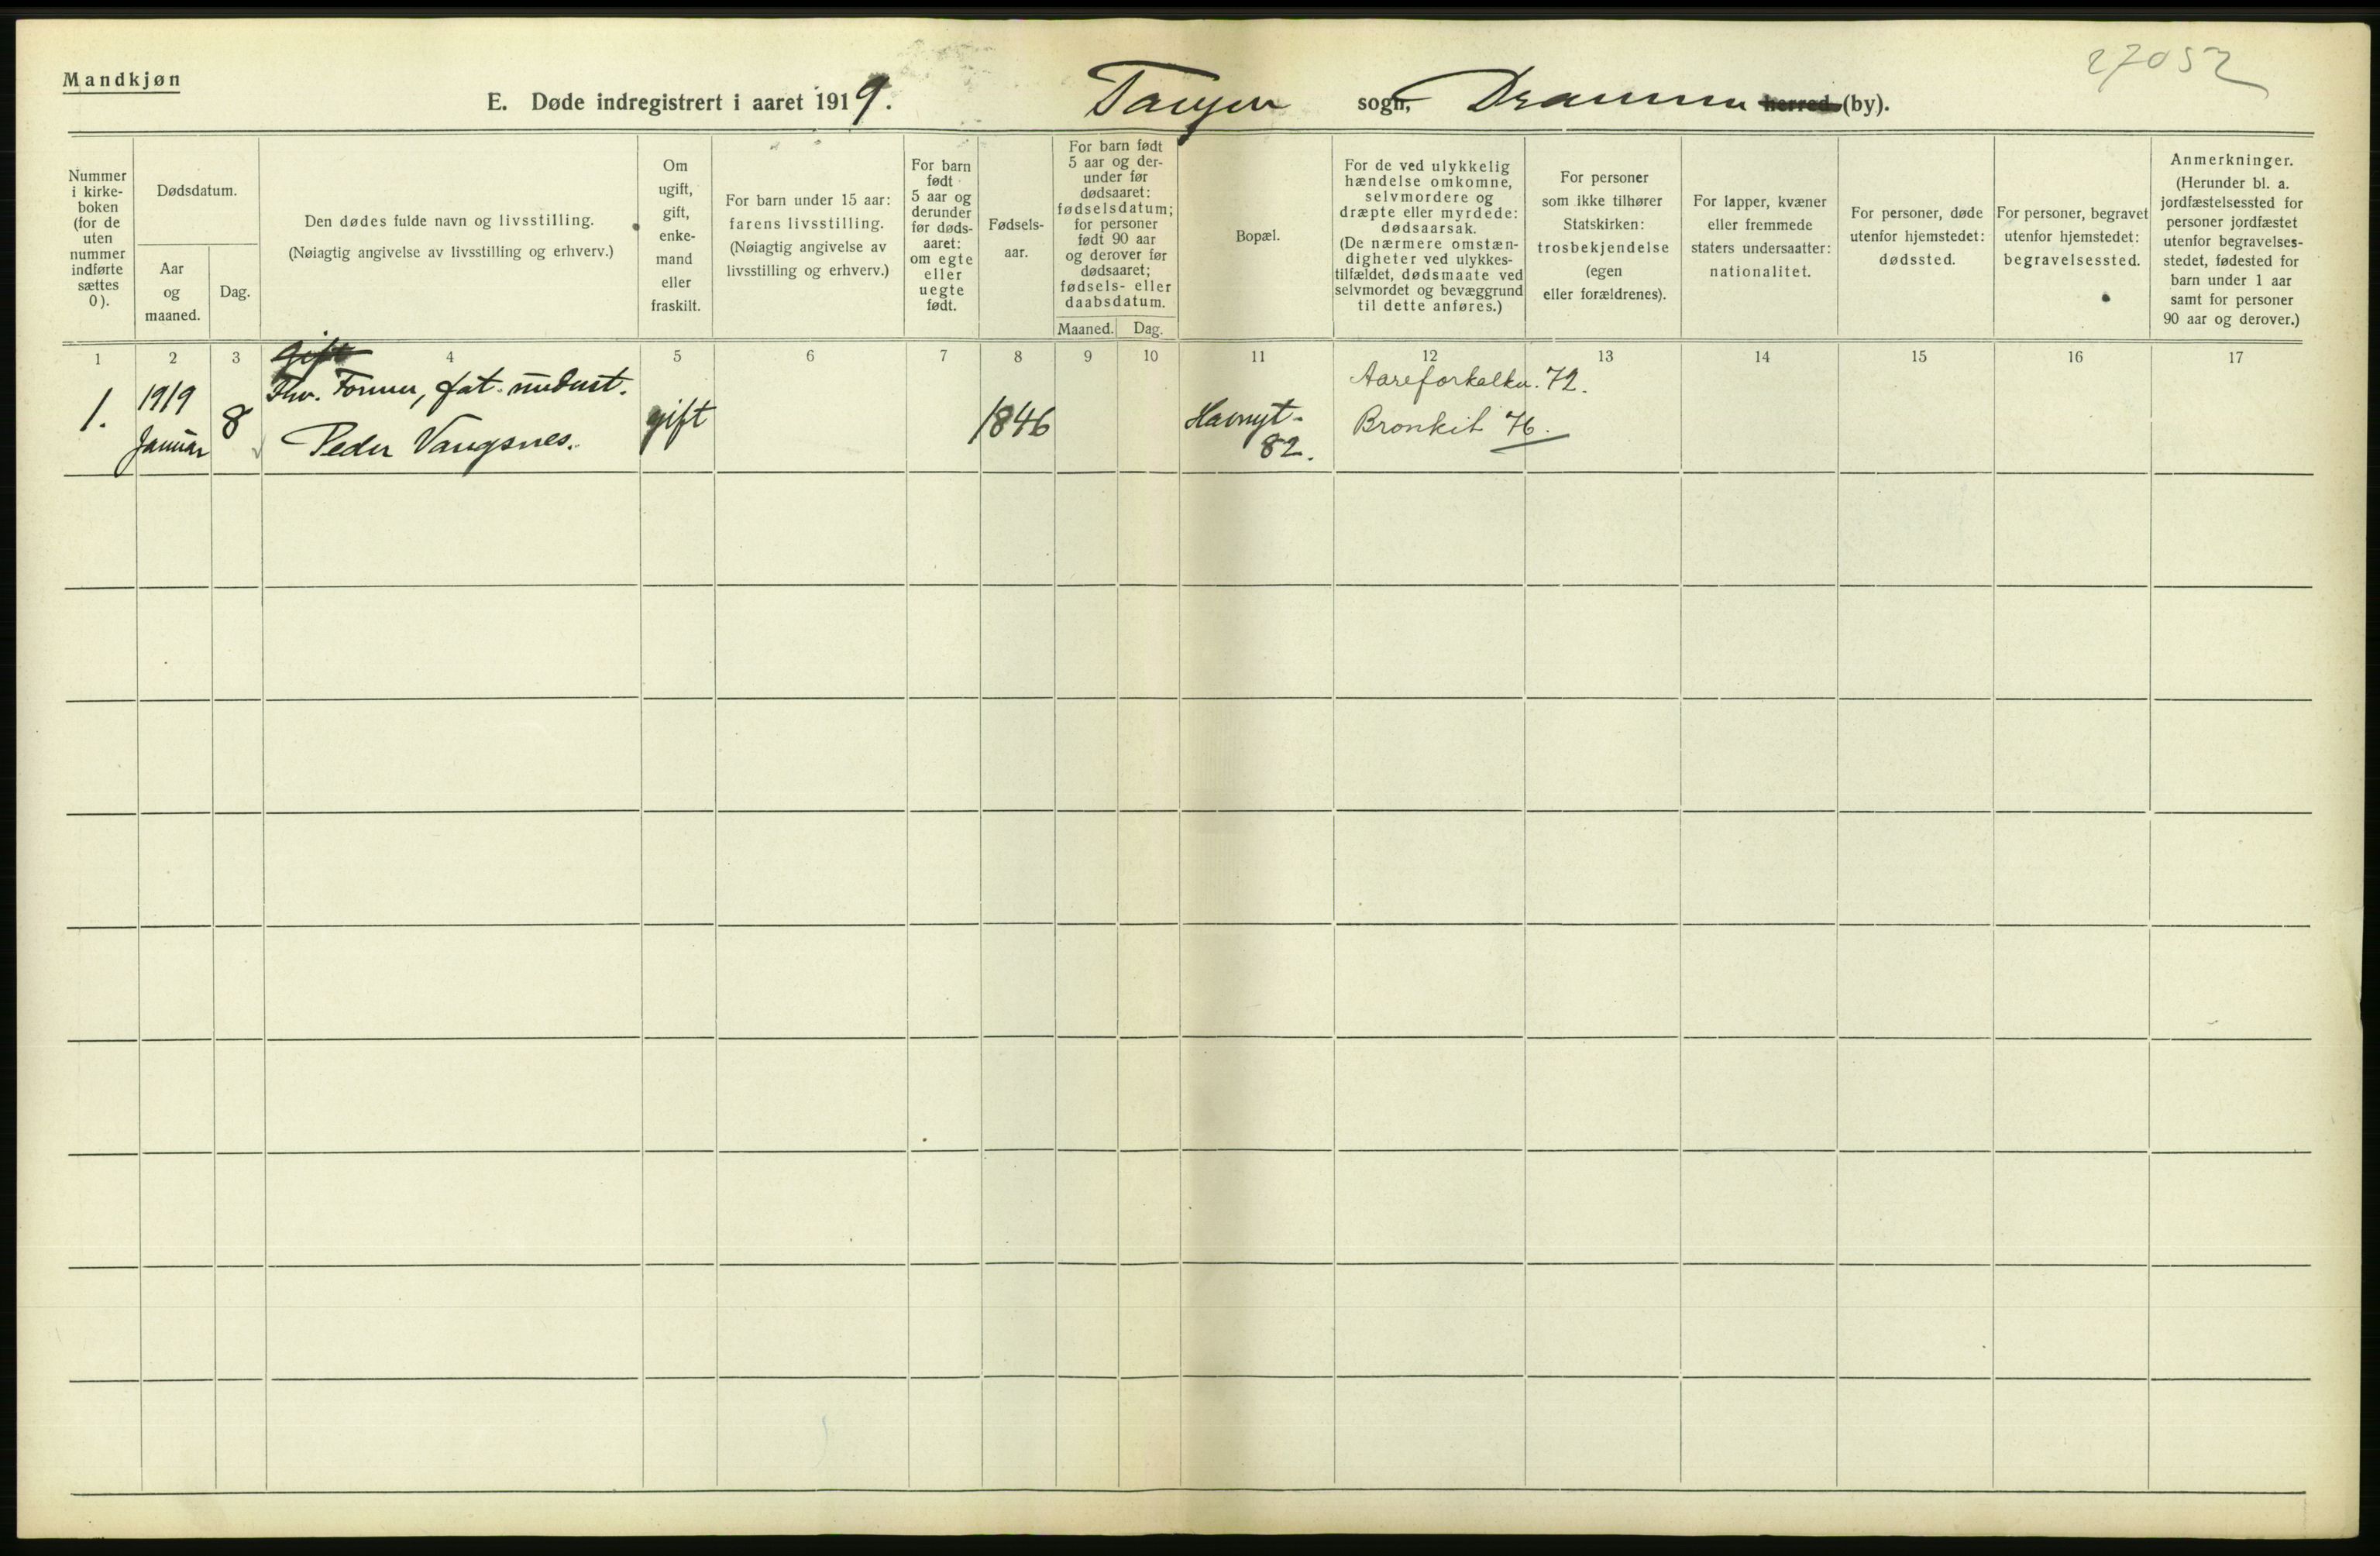 Mandkjøn
27052
E. Døde indregistrert i aaret 1919. Tangen sogn, Drammen herred (by).
Nummer
i kirke-
boken
(for de
uten
nummer
indførte
sættes
0).
Dødsdatum.
Aar
og
maaned.
Dag.
Den dødes fulde navn og livsstilling.
(Nøiagtig angivelse av livsstilling og erhverv.)
Om
ugift,
gift,
enke-
mand
eller
fraskilt.
For barn under 15 aar:
farens livsstilling.
(Nøiagtig angivelse av
livsstilling og erhverv.)
For barn
født
5 aar og
derunder
før døds-
aaret:
om egte
eller
uegte
født.
Fødsels-
aar.
For barn født
5 aar og der-
under før
dødsaaret:
fødselsdatum;
for personer
født 90 aar
og derover før
dødsaaret;
fødsels- eller
daabsdatum.
Maaned.
Dag.
Bopæl.
For de ved ulykkelig
hændelse omkomne,
selvmordere og
dræpte eller myrdede:
dødsaarsak.
(De nærmere omstæn-
digheter ved ulykkes-
tilfældet, dødsmaate ved
selvmordet og bevæggrund
til dette anføres.)
For personer
som ikke tilhører
Statskirken:
trosbekjendelse
(egen
eller forældrenes).
For lapper, kvæner
eller fremmede
staters undersaatter:
nationalitet.
For personer, døde
utenfor hjemstedet:
dødssted.
For personer, begravet
utenfor hjemstedet:
begravelsessted.
Anmerkninger.
(Herunder bl. a.
jordfæstelsessted for
personer jordfæstet
utenfor begravelses-
stedet, fødested for
barn under 1 aar
samt for personer
90 aar og derover.)
1 2 3 4 5 6 7 8 9 10 11 12 13 14 15 16 17
gift
1.
1919
Januar
8
Fhv. Former, fat. underst.
Peder Vangsnes.
gift
1846
Havngt.
82.
Aareforkalkn. 72.
Bronkit 76.